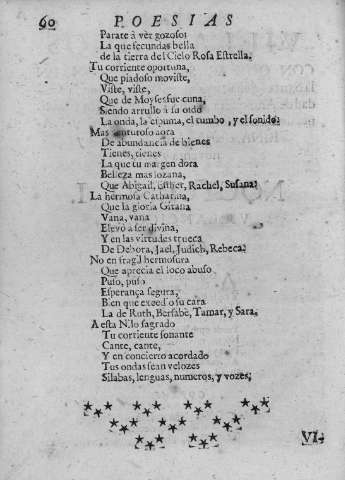 60 POESIAS
Parate à vèr gozoso:
La que fecundas bella
de la tierra del Cielo Rosa Estrella.
Tu corriente oportuna,
Que piadoso moviste,
Viste, viste,
Que de Moyses fue cuna,
Siendo arrullo à su oìdo
La onda, la espuma, el tumbo, y el sonido:
Mas venturoso aora
De abundancia de bienes
Tienes, tienes
La que tu margen dora
Belleza mas lozana,
Que Abigail, Esther, Rachel, Susana:
La hermosa Catharina,
Que la gloria Gitana
Vana, vana
Elevò a ser divina,
Y en las virtudes trueca
De Debora, Jael, Judich, Rebeca:
No en fragil hermosura
Que aprecia el loco abuso
Puso, puso
Esperança segura,
Bien que excediò su cara
La de Ruth, Bersabè, Tamar, y Sara.
A esta Nilo sagrado
Tu corriente sonante
Cante, cante,
Y en concierto acordado
Tus ondas sean velozes
Silabas, lenguas, numeros, y vozes;
VI-